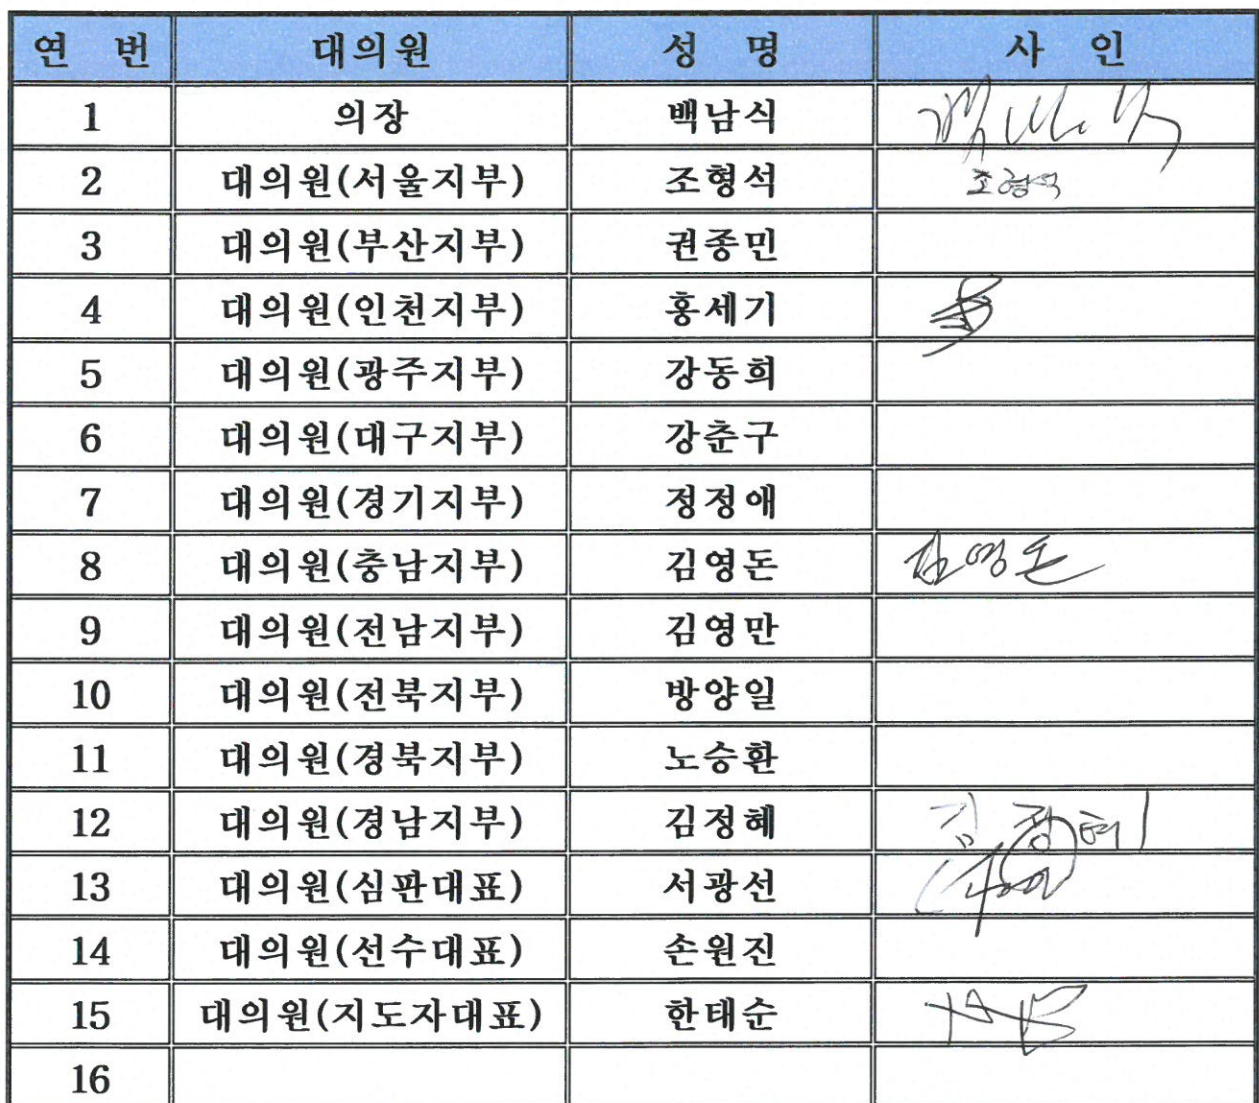 연 번 대의원 성 명 사 인
1 의장 백남식
2 대의원(서울지부) 조형석 조형석
3 대의원(부산지부) 권종민
4 대의원(인천지부) 홍세기
5 대의원(광주지부) 강동희
6 대의원(대구지부) 강춘구
7 대의원(경기지부) 정정애
8 대의원(충남지부) 김영돈 김영돈
9 대의원(전남지부) 김영만
10 대의원(전북지부) 방양일
11 대의원(경북지부) 노승환
12 대의원(경남지부) 김정혜 김정혜
13 대의원(심판대표) 서광선
14 대의원(선수대표) 손원진
15 대의원(지도자대표) 한태순
16